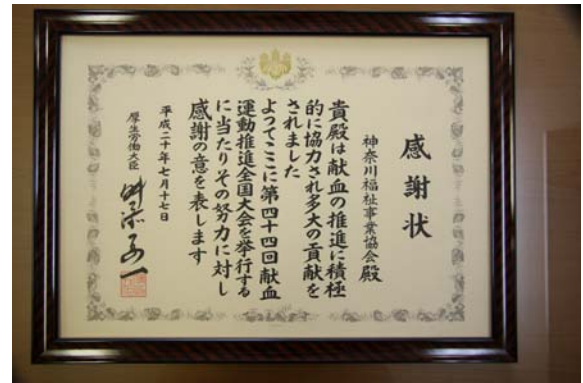 感謝状
神奈川福祉事業協会殿
貴殿は献血の推進に積極
的に協力され多大の貢献を
されました
よってここに第四十四回献血
運動推進全国大会を挙行する
に当たりその努力に対し
感謝の意を表します
平成二十年七月十七日
厚生労働大臣 舛添要一